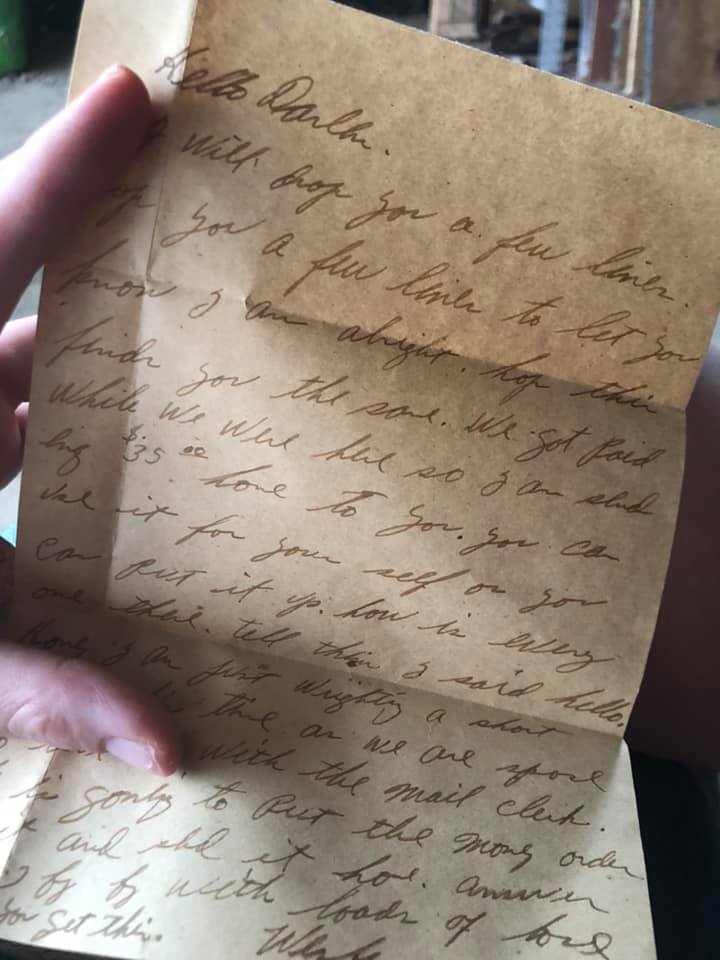 Hello Darlin.
will drop you a few lines.
op you a few lines to let you
know I am alright. hop this
finds you the same. We got Paid
while we were here so I am shd
ing $35 00 home to you. you can
use it for your self or you
can put it up. how is every
one there. tell them I said hello.
Honey I am just wrighting a short
this time as we are spose
with the mail clerk.
is gonby to Put the mony order
and shd it home. answer
by by with loads of love
you get this.